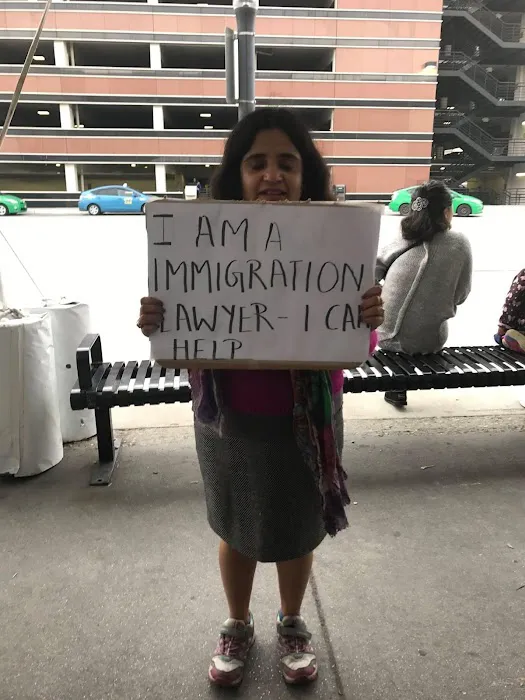 I AM A
IMMIGRATION
LAWYER - I CAN
HELP